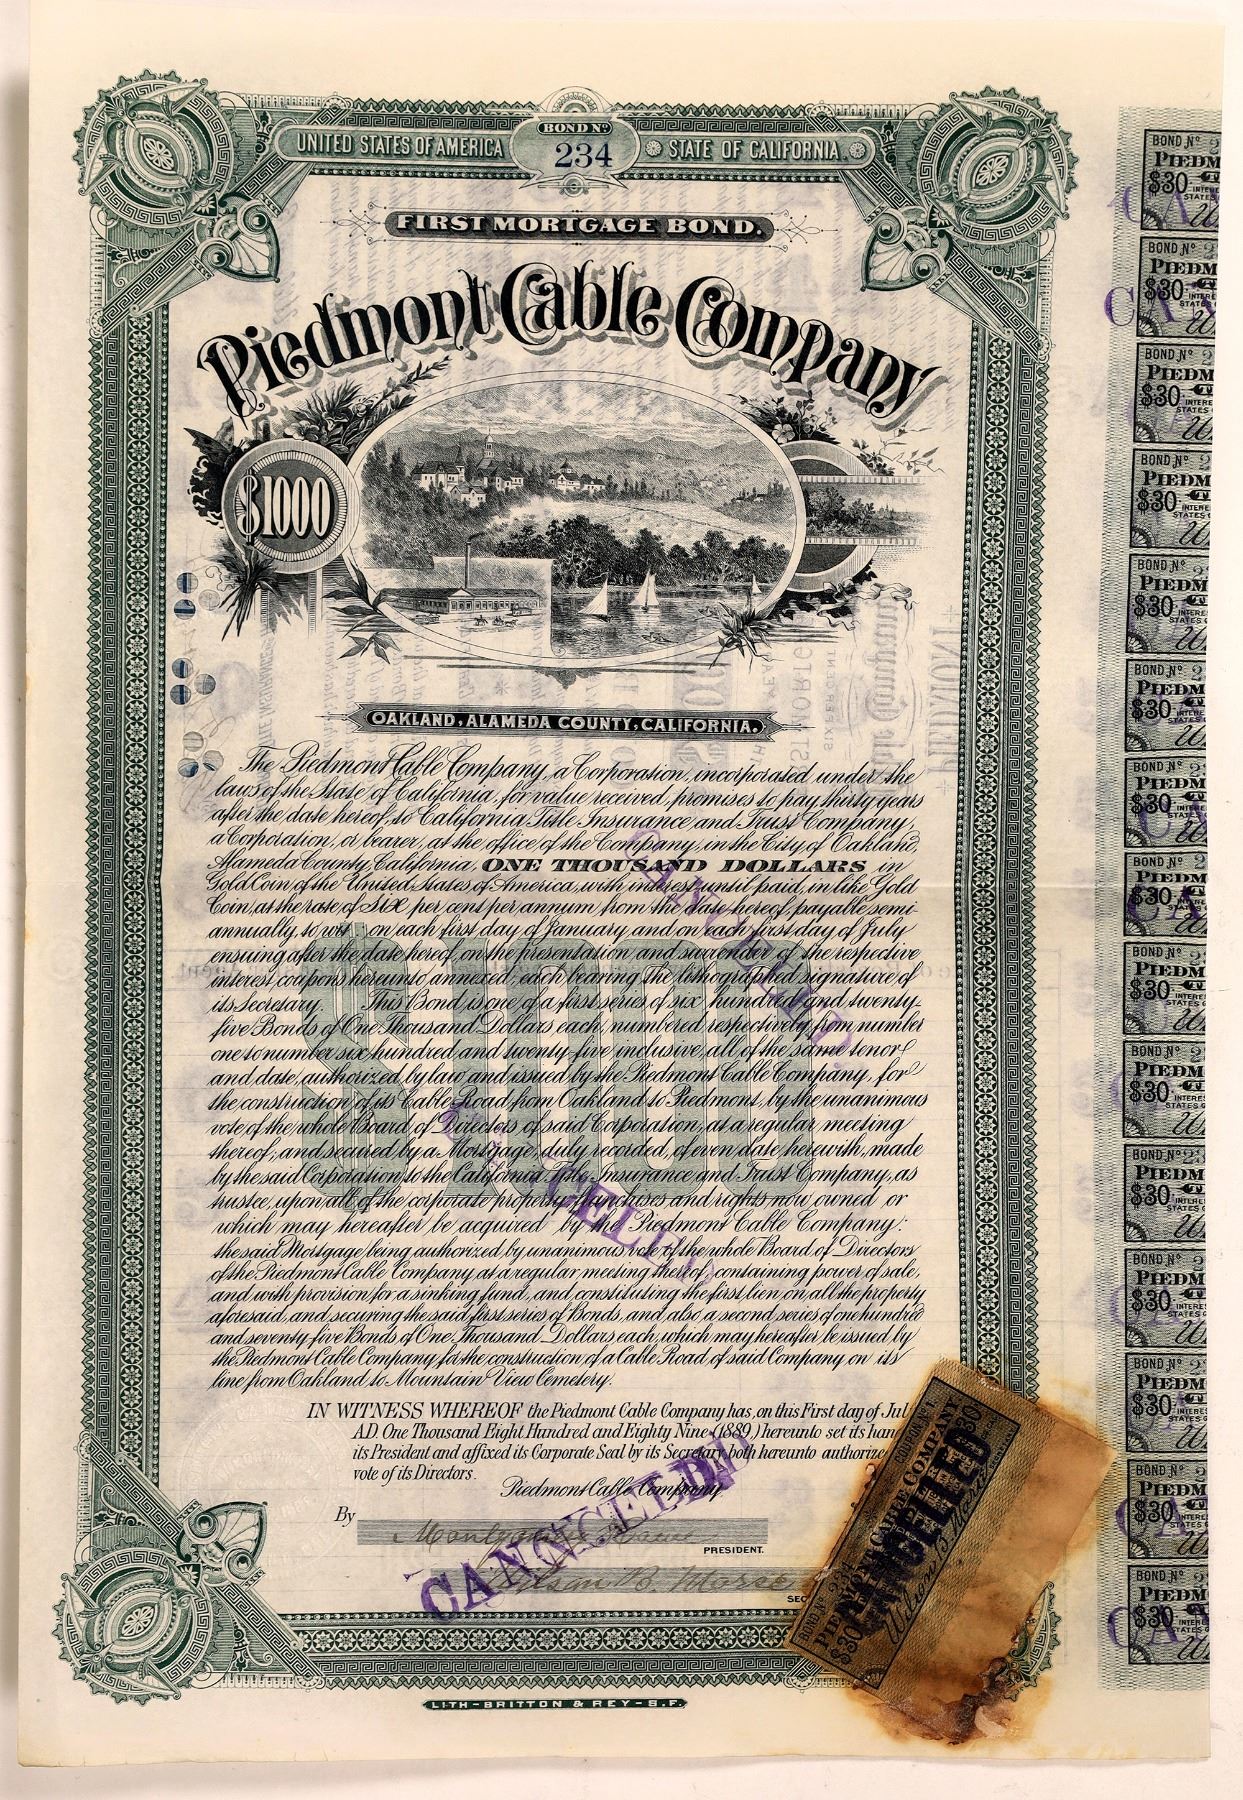 BOND Nº
UNITED STATES OF AMERICA 234 STATE OF CALIFORNIA
FIRST MORTGAGE BOND.
Piedmont Cable Company
$1000
OAKLAND, ALAMEDA COUNTY, CALIFORNIA.
The Piedmont Cable Company, a Corporation, incorporated under the
laws of the State of California, for value received, promises to pay thirty years
after the date hereof, to California Title Insurance and Trust Company,
a Corporation, or bearer, at the office of the Company, in the City of Oakland,
Alameda County, California, ONE THOUSAND DOLLARS in
Gold Coin of the United States of America, with interest until paid, in like Gold
Coin, at the rate of Six per cent per annum from the date hereof, payable semi-
annually, to wit: on each first day of January and on each first day of July
ensuing after the date hereof, on the presentation and surrender of the respective
interest coupons hereunto annexed, each bearing the lithographed signature of
its Secretary. This Bond is one of a first series of six hundred and twenty-
five Bonds of One Thousand Dollars each, numbered respectively from number
one to number six hundred and twenty-five inclusive, all of the same tenor
and date, authorized by law and issued by the Piedmont Cable Company, for
the construction of its Cable Road from Oakland to Piedmont, by the unanimous
vote of the whole Board of Directors of said Corporation, at a regular meeting
thereof; and secured by a Mortgage, duly recorded, of even date herewith, made
by the said Corporation to the California Title Insurance and Trust Company, as
trustee, upon all of the corporate property, franchises and rights now owned or
which may hereafter be acquired by the Piedmont Cable Company:
the said Mortgage being authorized by unanimous vote of the whole Board of Directors
of the Piedmont Cable Company at a regular meeting thereof, containing power of sale,
and with provision for a sinking fund, and constituting the first lien on all the property
aforesaid, and securing the said first series of Bonds, and also a second series of one hundred
and seventy-five Bonds of One Thousand Dollars each, which may hereafter be issued by
the Piedmont Cable Company for the construction of a Cable Road of said Company on its
line from Oakland to Mountain View Cemetery.
IN WITNESS WHEREOF the Piedmont Cable Company has, on this First day of Jul
A.D. One Thousand Eight Hundred and Eighty Nine (1889) hereunto set its han
its President and affixed its Corporate Seal by its Secretary, both hereunto authorize
vote of its Directors.
Piedmont Cable Company
By Montgomery Howe
PRESIDENT.
Wilson B. Morse
SEC
CANCELED
CANCELED
CANCELED
COUPON Nº 1
BOND Nº 234
PIEDMONT CABLE COMPANY
$30
CANCELED
Wilson B. Morse
LITH-BRITTON & REY-S.F.
BOND Nº 2
PIEDM
$30 INTERE
STATES
BOND Nº 2
PIEDM
$30 INTERE
STATES
BOND Nº 2
PIEDM
$30 INTERE
STATES
BOND Nº 2
PIEDM
$30 INTERE
STATES
BOND Nº 2
PIEDM
$30 INTERE
STATES
BOND Nº 2
PIEDM
$30 INTERE
STATES
BOND Nº 2
PIEDM
$30 INTERE
STATES
BOND Nº 2
PIEDM
$30 INTERE
STATES
BOND Nº 2
PIEDM
$30 INTERE
STATES
BOND Nº 2
PIEDM
$30 INTERE
STATES
BOND Nº 23
PIEDM
$30 INTERE
STATES
BOND Nº 2
PIEDM
$30 INTERE
STATES
BOND Nº 2
PIEDM
$30 INTERE
STATES
BOND Nº 2
PIEDM
$30 INTERE
STATES
BOND Nº 2
PIEDM
$30 INTERE
STATES